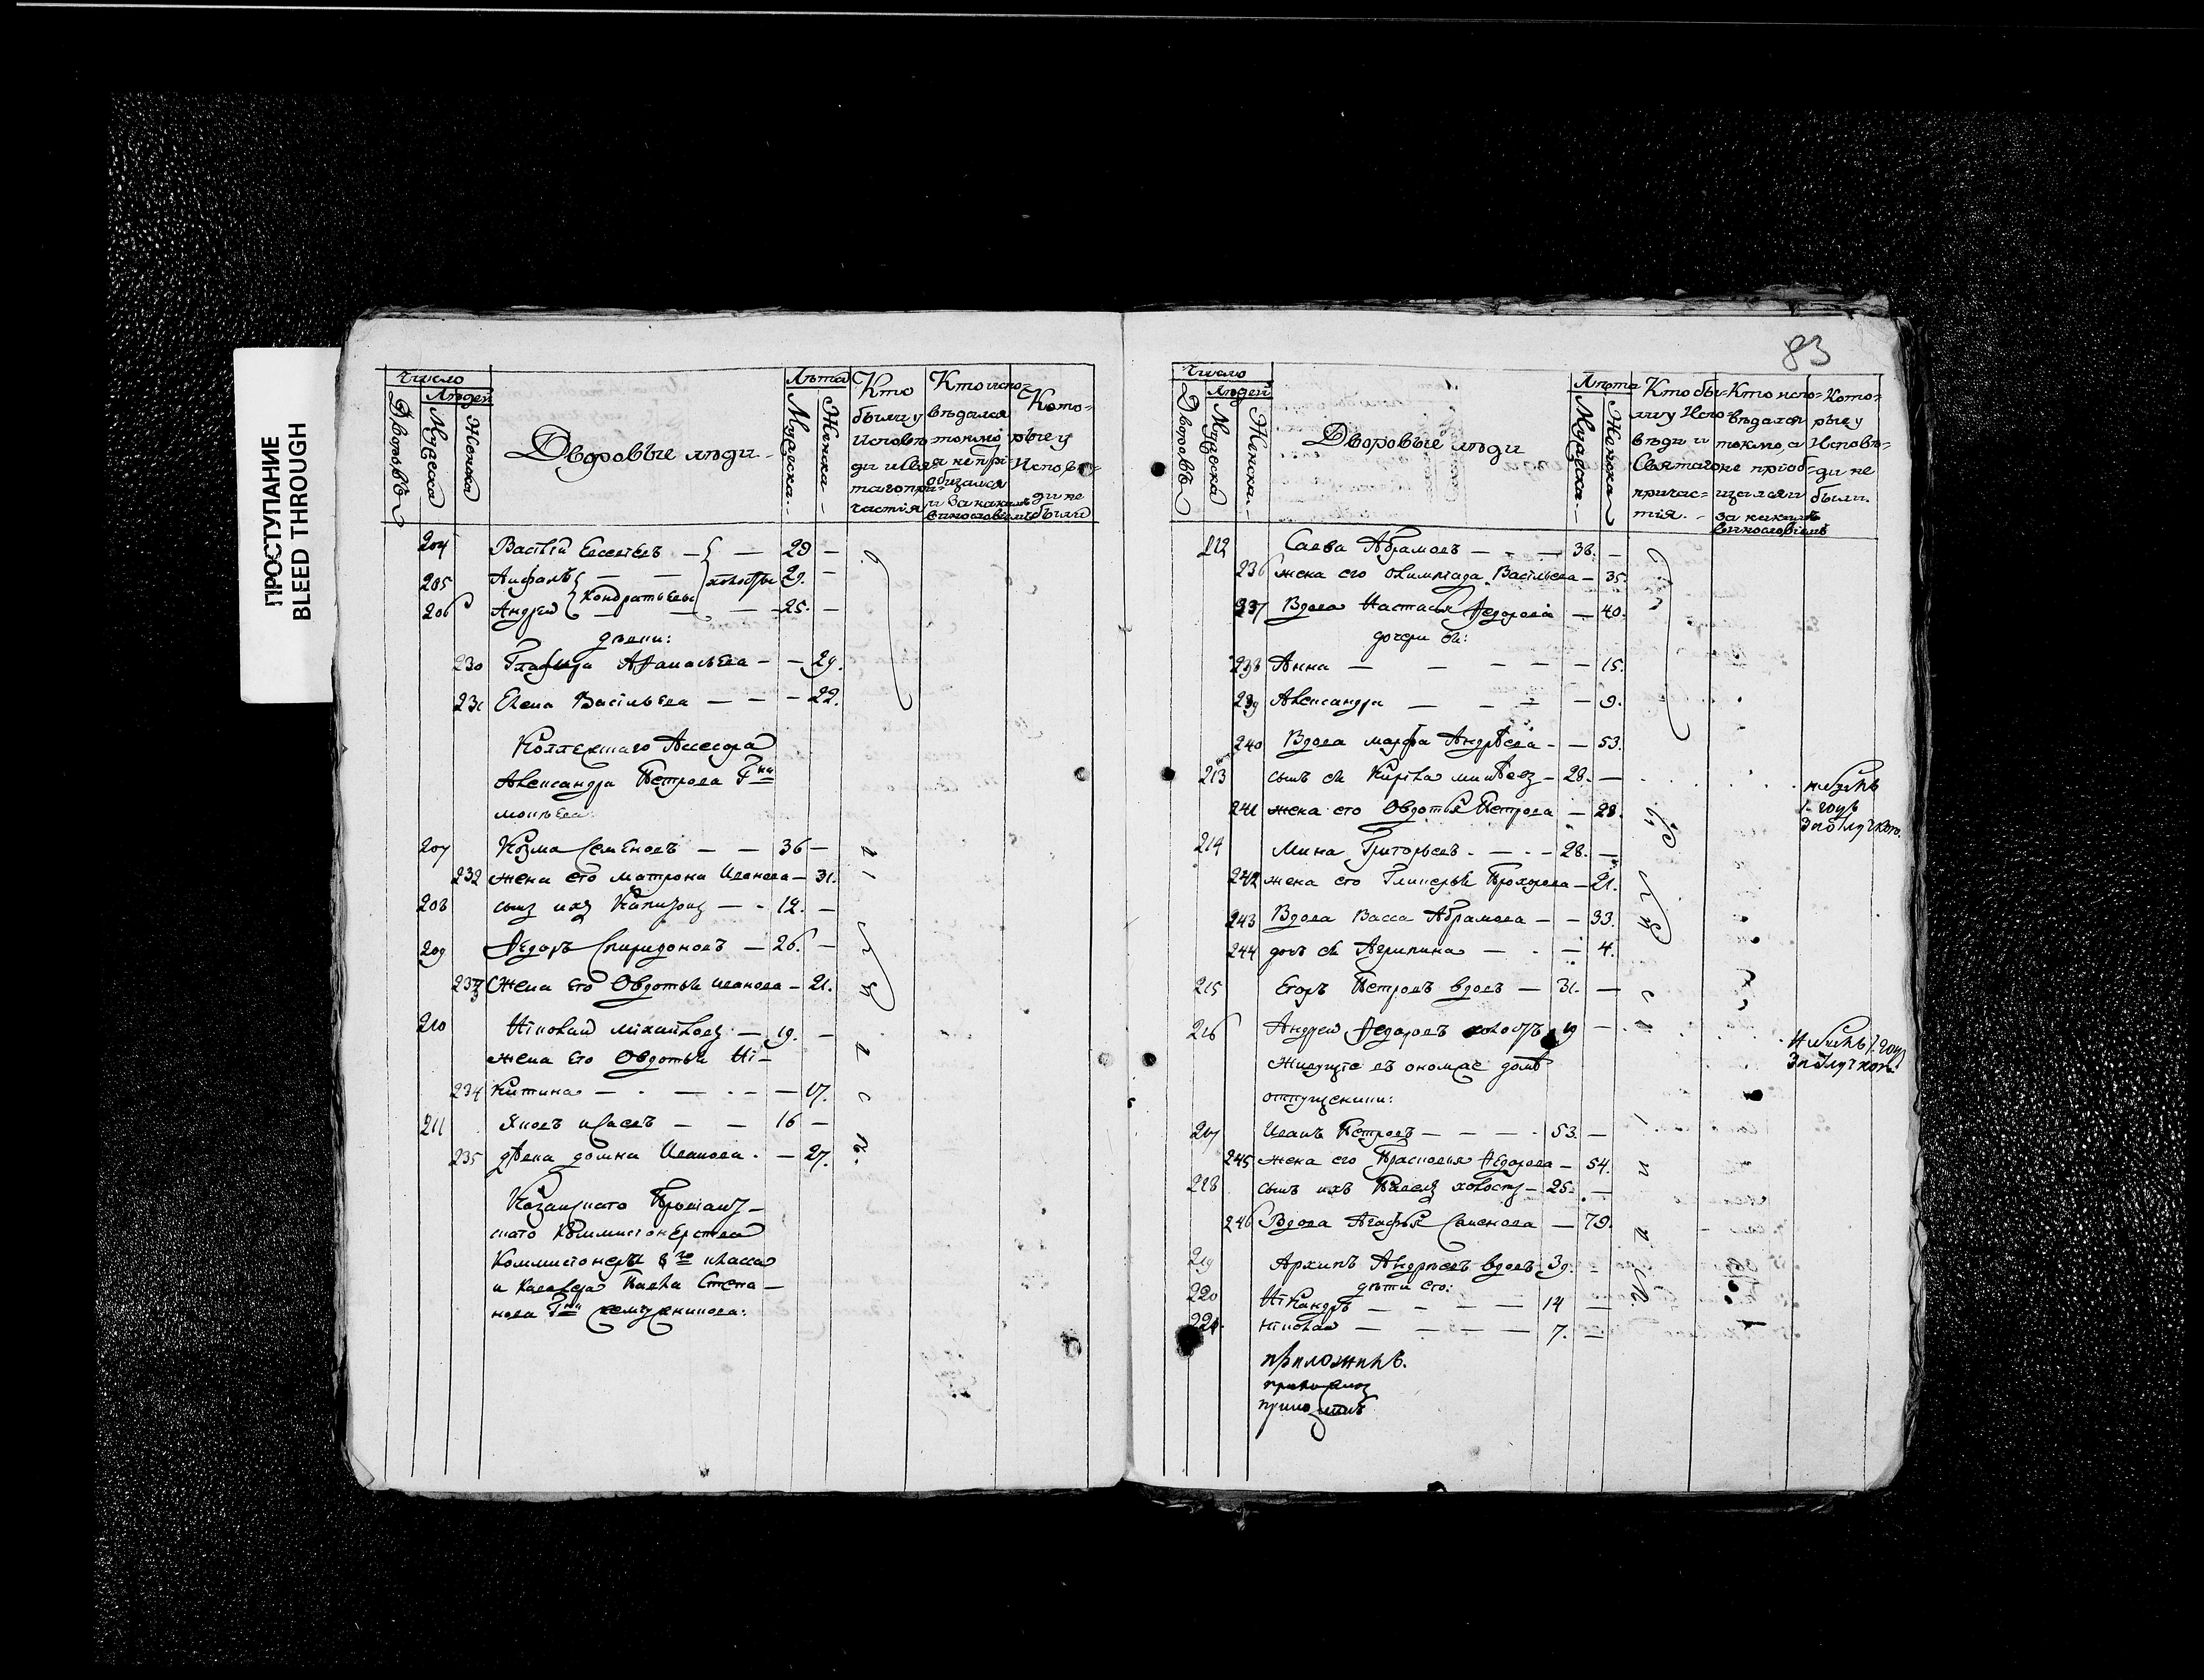 ПРОСТУПАНИЕ
BLEED THROUGH
Число
Людей
Дворовъ
Мужеска
Женска
Дворовые люди
Лѣта
Мужеска
Женска
Кто
были у
Исповѣ
ди и свя
таго при
частія
Кто испо=
вѣдался
токмо,
а не прі=
общался
и за какимъ
винословіемъ
Кото=
рые у
Исповѣ=
ди не
были
204 Василій Евсеевъ — 29 —
205 Анфалъ — — 29. —
Кондратьевы холосты
206 Андрей — — 25. —
дѣвки:
230 Глафира Афанасьева — — 29.
231 Елена Васильева — — — 22.
Коллежскаго Ассесора
Александра Петрова Гна
207 Козма Семеновъ — — 36 —
232 жена его матрона Иванова — 31.
208 сынъ ихъ Капитонъ — - 12. —
209 Ѳедоръ Спиридоновъ — 26. —
233 Жена его Овдотья Иванова — 21.
210 Николай михайловъ — 19. —
жена его Овдотья Ни-
234 китина — - — - — — 17.
211 Яковъ — — 16 —
235 дѣвка домна Иванова - — 27.
Казанскаго Провіант-
скаго Коммисіонерства
Коммисіонера 8го класса
и Кавалера Павла Степа-
нова Гна
83
Число
Людей
Дворовъ
Мужеска
Женска
Дворовые люди
Лѣта
Мужеска
Женска
Кто бы-
ли у Испо-
вѣди и
Святаго
причас=
тія.
Кто испо=
вѣдался
токмо, а
не приоб-
щался и
за какимъ
винословіемъ
Кото=
рые у
Исповѣ=
ди не
были.
212 Савва Абрамовъ — - — 38. —
236 жена его Олимпіада Васильева — 35.
237 Вдова Настасья Ѳедорова — 40.
дочери ея:
238 Анна — — — — — 15.
239 Александра — — — — 9.
240 Вдова марфа Андрѣева - — 53.
213 сынъ ея Кирила — 28. —
241 жена его Овдотья Петрова — 28.
214 Мина Григорьевъ - — - - 28. —
242 жена его Гликерья Прохорова — 21.
243 Вдова Васса Абрамова — — 33.
244 дочь ея Агрипина — - — 4.
215 Егоръ Петровъ вдовъ — 31. —
216 Андрей Ѳедоровъ холостъ 19 —
Живущіе въ ономже домѣ
отпущеники:
217 Иванъ Петровъ — — — - 53. —
245 жена его Прасковья Ѳедорова — 54.
218 сынъ ихъ Павелъ холостъ — 25. —
246 Вдова Агафья Семенова — 79.
219 Архипъ Андреевъ вдовъ 39. -
дѣти его:
220 Никандръ — — — — 14 —
221 Николай — — — — 7. —